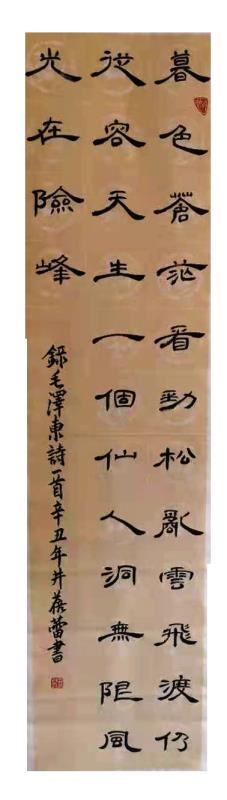 暮色蒼茫看勁松亂雲飛渡仍
從容天生一個仙人洞無限風
光在險峰
錄毛澤東詩一首辛丑年井蓓蕾書